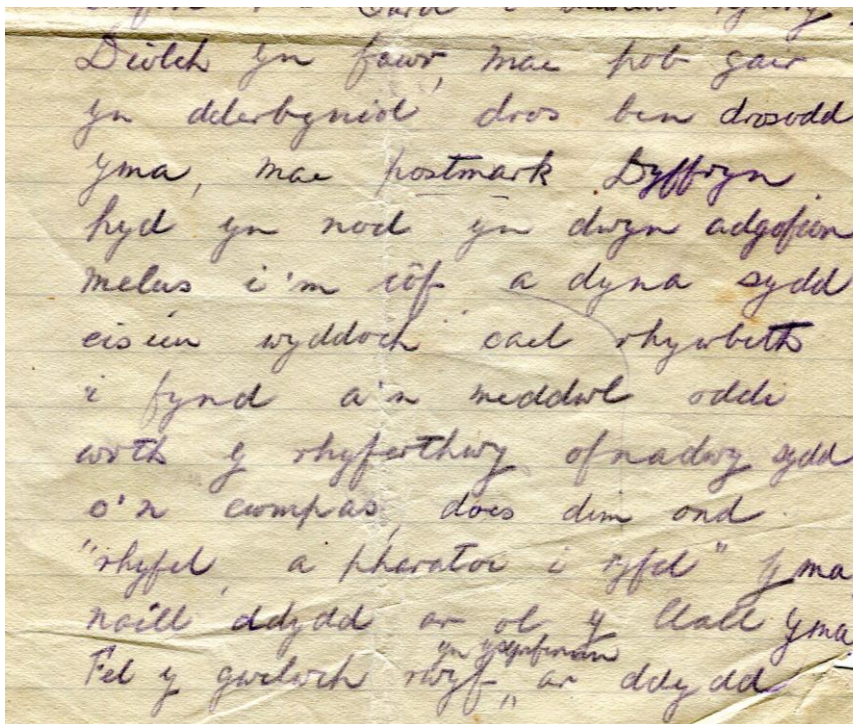 Diolch yn fawr, mae pob gair
yn dderbyniol dros ben drosodd
yma, mae postmark Dyffryn
hyd yn nod yn dwyn adgofion
melus i'm côf a dyna sydd
eisieu wyddoch cael rhywbeth
i fynd a'n meddwl oddi
wrth y rhyferthwy ofnadwy sydd
o'n cwmpas, does dim ond
"rhyfel, a pharatoi i ryfel" yma
naill ddydd ar ol y llall yma
Fel y gwelwch rwyf yn ysgrifennu ar ddydd